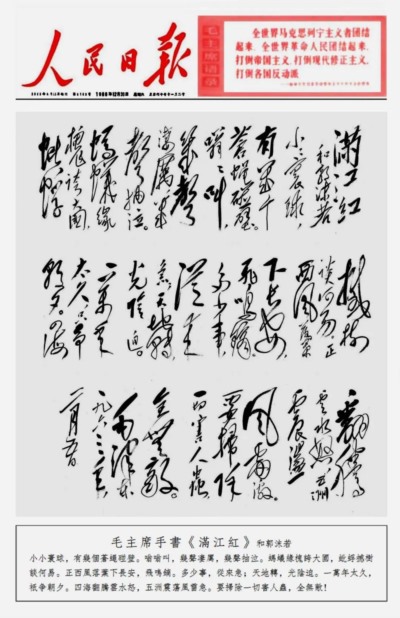 人民日報
毛主席语录
全世界马克思列宁主义者团结
起来，全世界革命人民团结起来，
打倒帝国主义，打倒现代修正主义，
打倒各国反动派
滿江紅
和郭沫若
小小寰球，
有幾个
蒼蠅碰壁。
嗡嗡叫，
幾聲
凄厲，幾
聲抽泣。
螞蟻緣
槐誇大國，
蚍蜉
撼树
談何易。正
西風落葉
下長安，
飛鳴鏑。
多少事，
從来
急。天地轉，
光陰迫。
一萬年
太久，只争
朝夕。四海
翻騰
雲水怒，五洲
震盪
風雷激。
要掃除
一切害人虫，
全無敵。
毛澤東
一九六三年
毛主席手書《滿江紅》和郭沫若
小小寰球，有幾個蒼蠅碰壁。嗡嗡叫，幾聲凄厲，幾聲抽泣。螞蟻緣槐誇大國，蚍蜉撼樹
談何易。正西風落葉下長安，飛鳴鏑。多少事，從來急；天地轉，光陰迫。一萬年太久，
衹争朝夕。四海翻騰雲水怒，五洲震荡風雷急。要掃除一切害人蟲，全無敵！